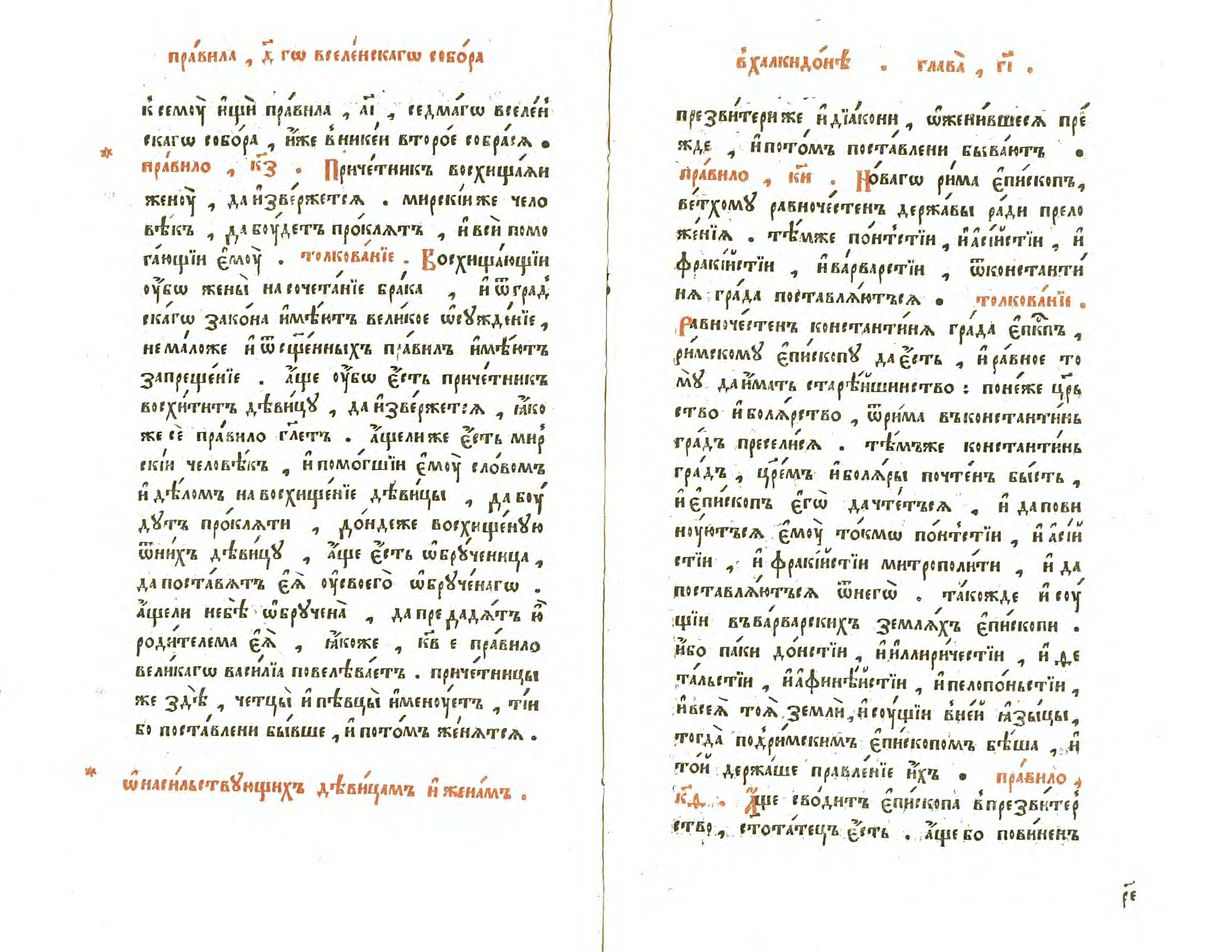 пра́вила , д҃ гѡ вселе́нскагѡ собо́ра
к҆семоу̀ и҆щѝ пра́вила , а҃і , седма́гѡ вселе́н
скагѡ собо́ра , и҆́же в҆нике́и второ́е собра́сѧ .
пра́вило , к҃з . Приче́тникъ восхища́ѧи
женоу̀ , да и҆зве́ржетсѧ . мирскі́и же чело
вѣ́къ , да боу́детъ про́клѧтъ , и҆ всѝ помо
га́ющїи є҆моу̀ . толкова́нїе . Восхища́ющїи
оу҆́бѡ жены̀ на сочета́нїе бра́ка , и҆ ѿ град
скагѡ зако́на и҆мѣ́ютъ вели́кое ѡ҆сужде́нїе ,
нема́ло же и҆ ѿ сщ҃е́нныхъ пра́вилъ и҆мѣ́ютъ
запреще́нїе . а҆́ще оу҆́бѡ є҆́сть приче́тникъ
восхи́титъ дѣви́цꙋ , да и҆зве́ржетсѧ , ꙗ҆́ко
же сѐ пра́вило гл҃етъ . а҆́ще ли же є҆́сть мир
скі́и человѣ́къ , и҆ помо́гшїи є҆моу̀ сло́вомъ
и҆ дѣ́ломъ на восхище́нїе дѣви́цы , да боу́
дꙋтъ про́клѧти , до́ндеже восхище́ную
ѿ ни́хъ дѣви́цꙋ , а҆́ще є҆́сть ѡ҆брꙋ́ченица ,
да поста́вѧтъ є҆ѧ̀ оу҆ своего̀ ѡ҆брꙋче́нагѡ .
а҆́ще ли не бѣ̀ ѡ҆брꙋчена̀ , да предадѧ́тъ ю҆̀
роди́телема є҆ѧ̀ , ꙗ҆́коже , к҃в е пра́вило
вели́кагѡ васи́лїа повелѣва́етъ . приче́тницы
же здѣ̀ , четцы̀ и҆ пѣвцы̀ и҆меноу́етъ , ті́и
бо поста́влени бы́вше , и҆ пото́мъ же́нѧтсѧ .
ѡ҆ наси́льствꙋющихъ дѣви́цамъ и҆ жена́мъ .
в҆ халкидо́нѣ . глава̀ , г҃і .
презви́тери же и҆ дїа́кони , ѡ҆жени́вшеся пре́
жде , и҆ пото́мъ поста́влени быва́ютъ .
пра́вило , к҃и . Но́вагѡ ри́ма є҆пи́скопъ ,
ве́тхомꙋ равноче́стенъ держа́вы ра́ди прело
же́нїѧ . тѣ́мже по́нтстїи , и҆ а҆сі́йстїи , и҆
фракі́йстїи , и҆ ва́рварстїи , ѿ константи́
нѧ гра́да поставлѧ́ютьсѧ . толкова́нїе .
Равноче́стенъ константи́нѧ гра́да є҆пк҃пъ ,
ри́мскомꙋ є҆пи́скопꙋ да є҆́сть , и҆ ра́вное то
мꙋ̀ да и҆́мать старѣ́ишинство : поне́же цр҃ь
ство и҆ болѧ́рство , ѿ ри́ма въ константи́нь
гра́дъ пресели́сѧ . тѣ́мъже константи́нь
гра́дъ , цр҃е́мъ и҆ болѧ́ры почте́нъ бы́сть ,
и҆ є҆пи́скопъ є҆гѡ̀ да чте́тьсѧ , и҆ да пови
ноу́ютьсѧ є҆моу̀ то́кмѡ по́нтстїи , и҆ а҆сі́й
стїи , и҆ фракі́йстїи митрополи́ти , и҆ да
поставлѧ́ютьсѧ ѿ негѡ̀ . та́кожде и҆ соу́
щїи въ ва́рварскихъ землѧ́хъ є҆пи́скопи .
и҆́бо па́ки до́нстїи , и҆ и҆ллири́честїи , и҆ ѳе
та́льстїи , и҆ а҆фине́йстїи , и҆ пелопо́ньстїи ,
и҆ всеѧ̀ тоѧ̀ землѝ , и҆ соу́щїи в҆ не́й ꙗ҆зы́цы ,
тогда̀ под̾ ри́мскимъ є҆пи́скопомъ бѣ́ша , и҆
то́й держа́ше правле́нїе и҆́хъ . пра́вило ,
к҃ѳ . А҆́ще сво́дитъ є҆пи́скопа в҆ презви́тер
ство , стота́тецъ є҆́сть . а҆́ще бо пови́ненъ
р҃е